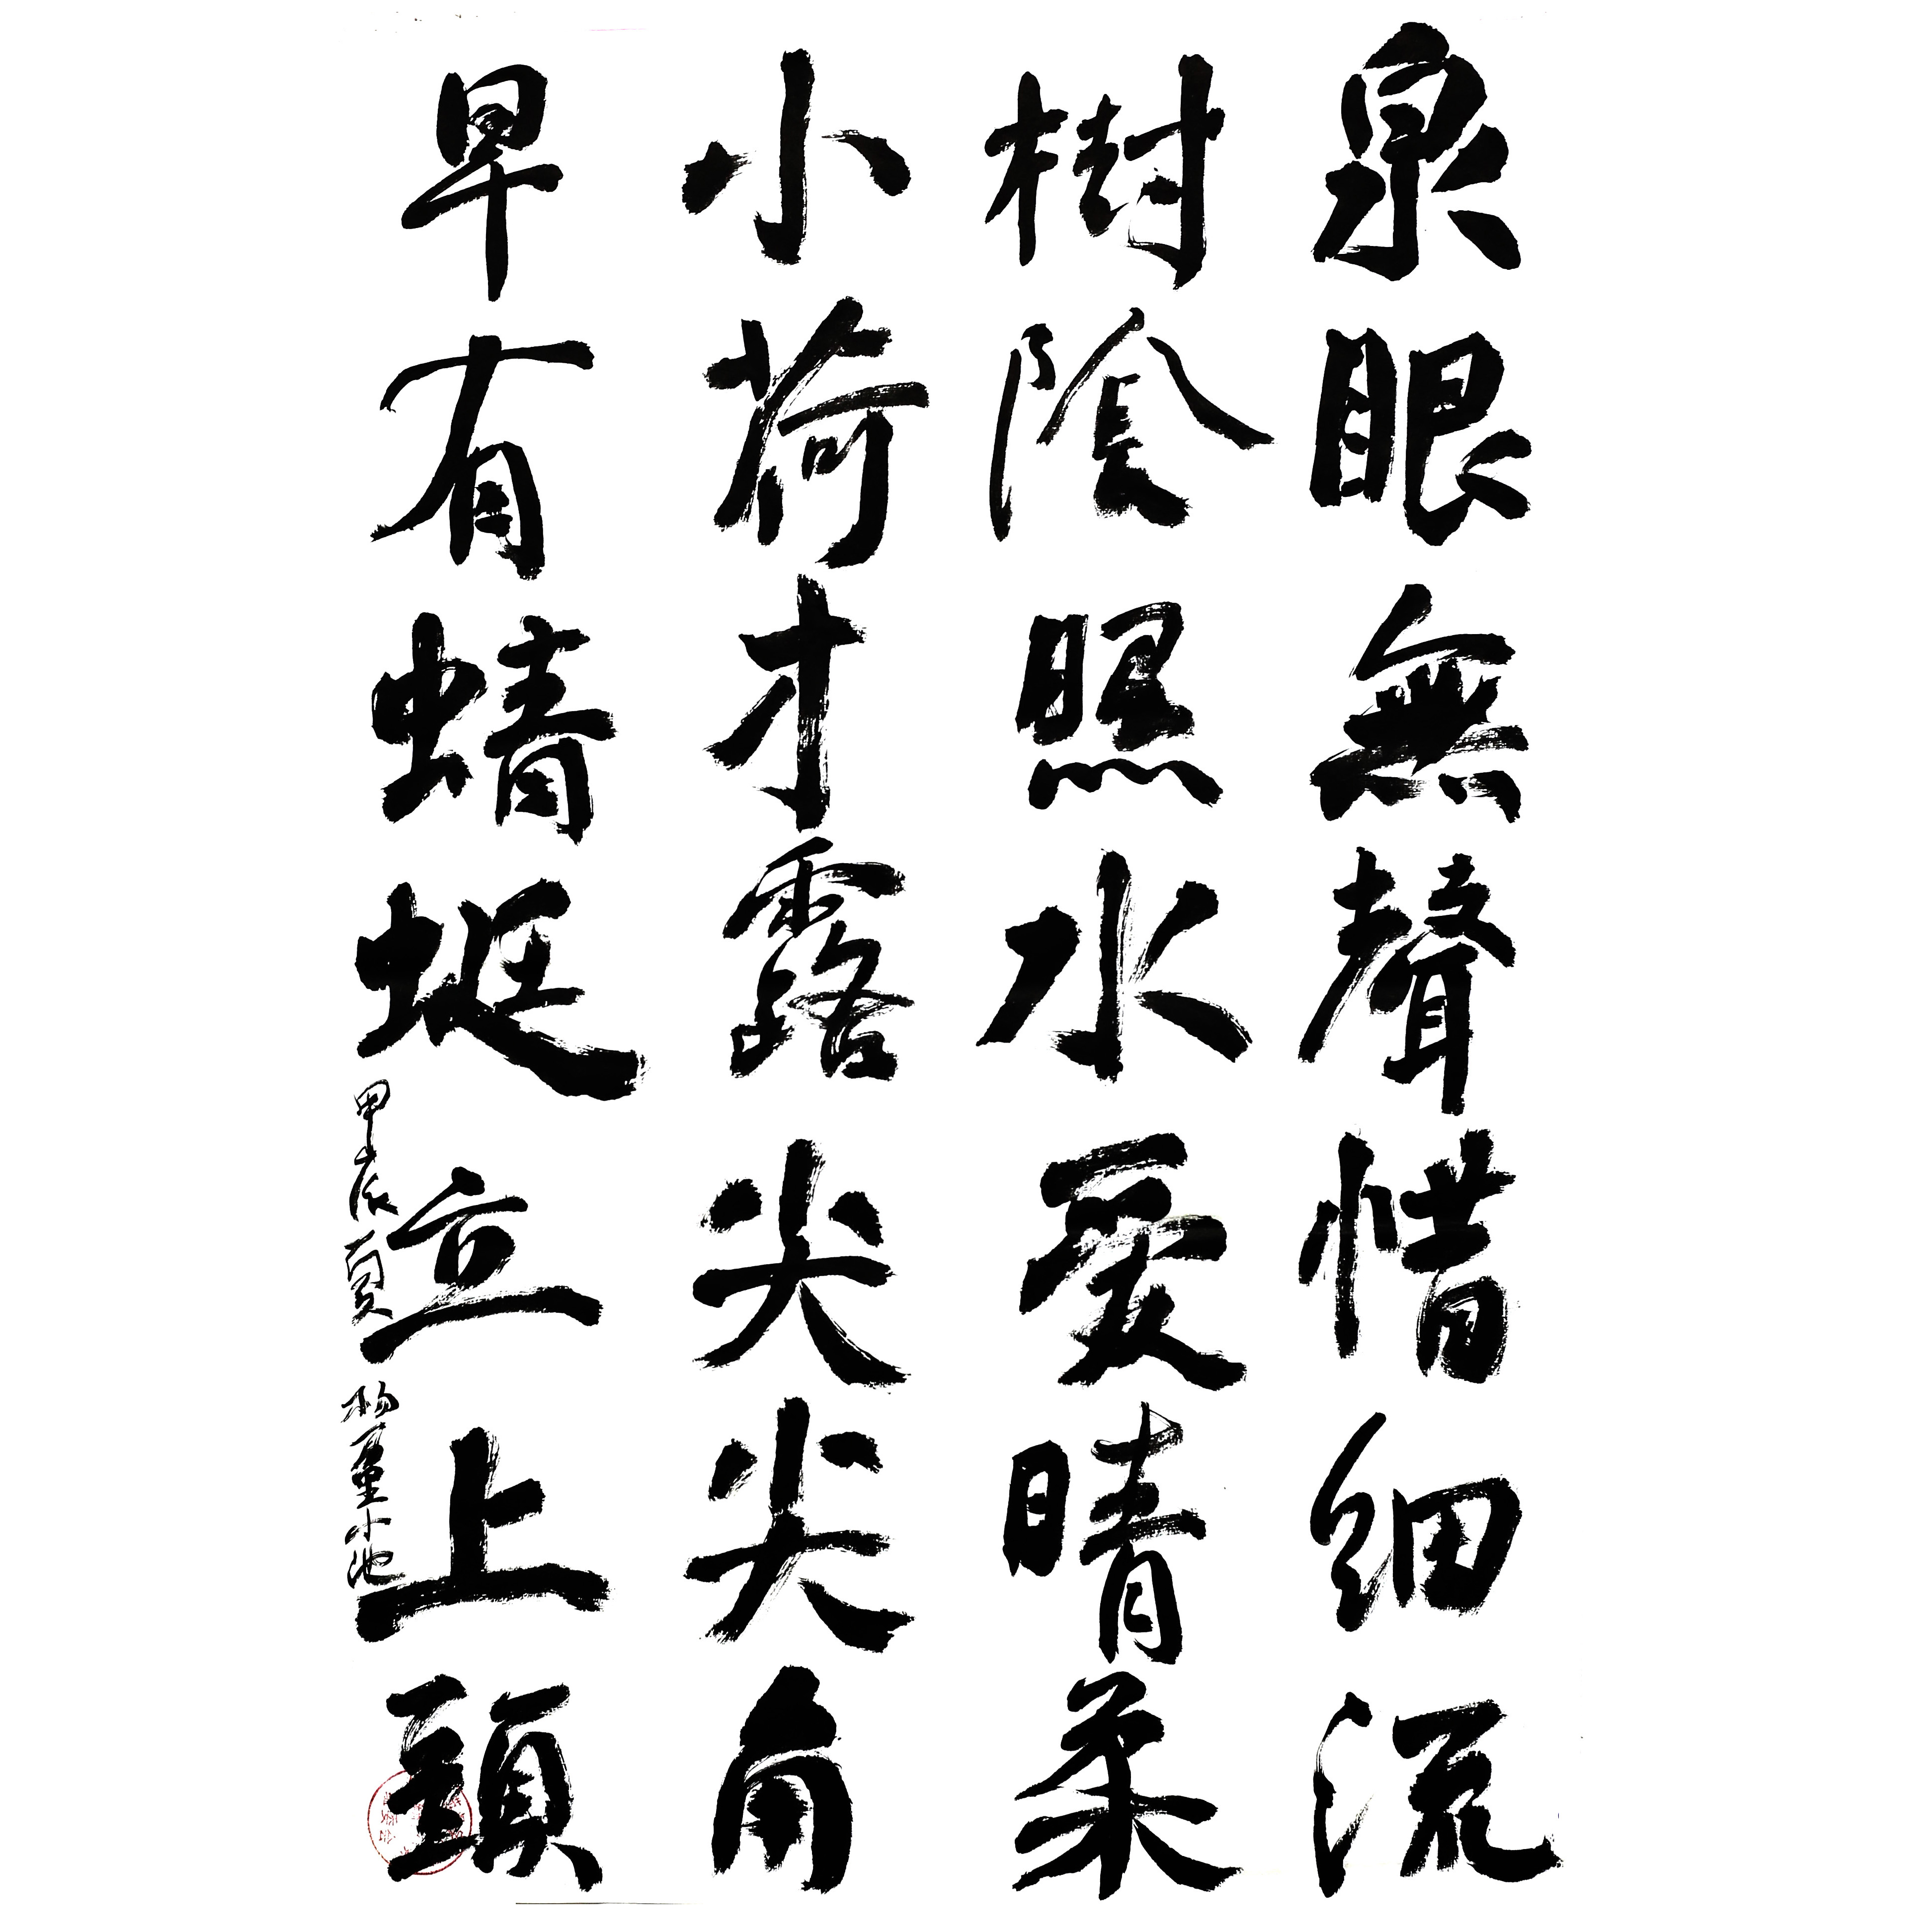 泉眼無聲惜細流
樹陰照水愛晴柔
小荷才露尖尖角
早有蜻蜓立上頭
甲辰夏 楊萬里小池